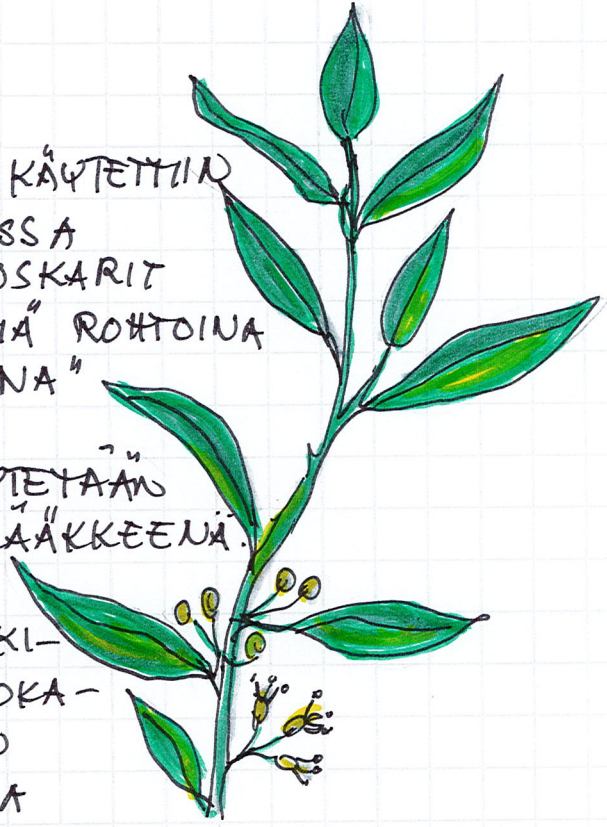 KÄYTETTIIN
SSA
OSKARIT
IÄ ROHTOINA
NA"
TETÄÄN
ÄÄKKEENÄ.
KI-
OKA-
O
A